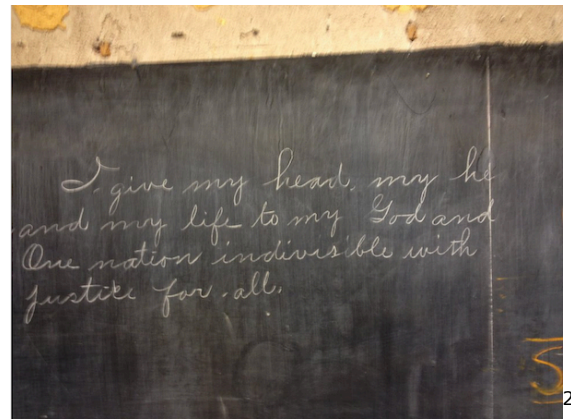 I give my head, my he
and my life to my God and
One nation indivisible with
justice for all.
S
2